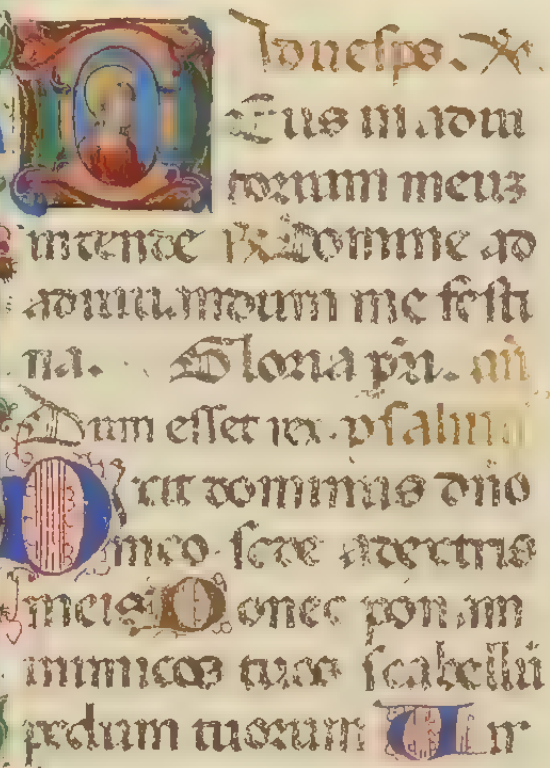 Ad vesps.
Deus in adiu
torium meuz
intende R Domine ad
adiuuandum me festi
na. Gloria pri. an
Dum esset rex. psalm
Dixit dominus dno
meo sede a dextris
meis Donec ponam
inimicos tuos scabellu
pedum tuorum Uir